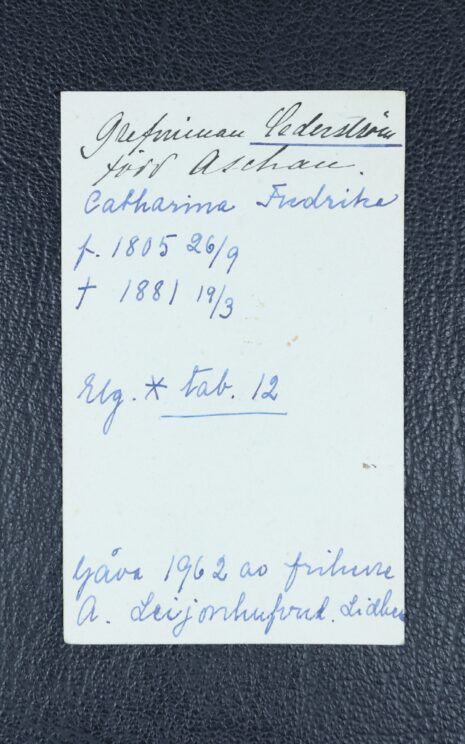 Grefvinnan Cederström
född Aschan.
Catharina Fredrika
f. 1805 26/9
† 1881 19/3
Elg. * tab. 12
Gåva 1962 av friherre
A. Leijonhufvud. Lidbe